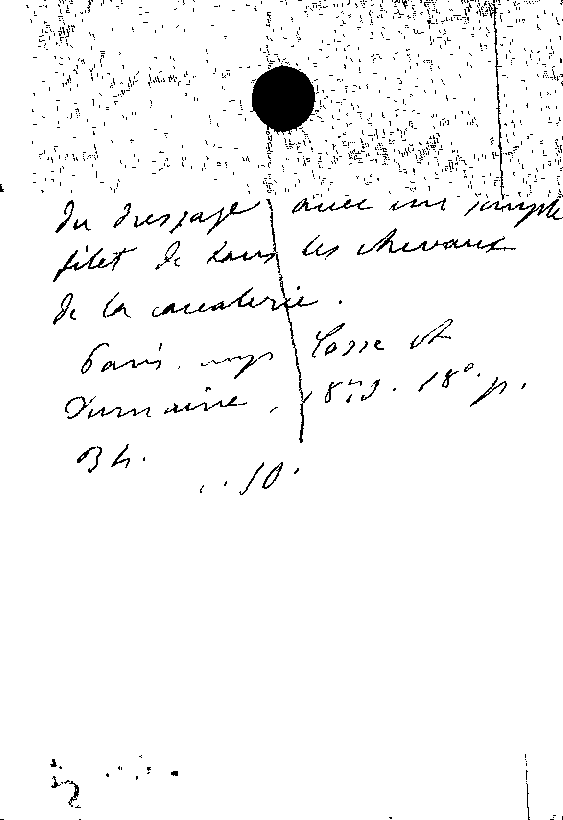 du dressage avec un simple
filet de tous les chevaux
de la cavalerie.
Paris. imp Cosse et
Dumaine, 18° p.
34.
50.